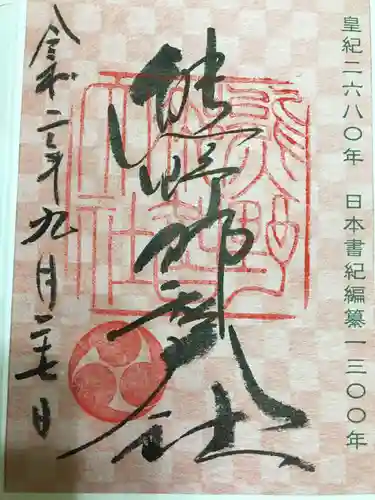 皇紀二六八〇年 日本書紀編纂一三〇〇年
熊野
社
令和二年九月二十七日